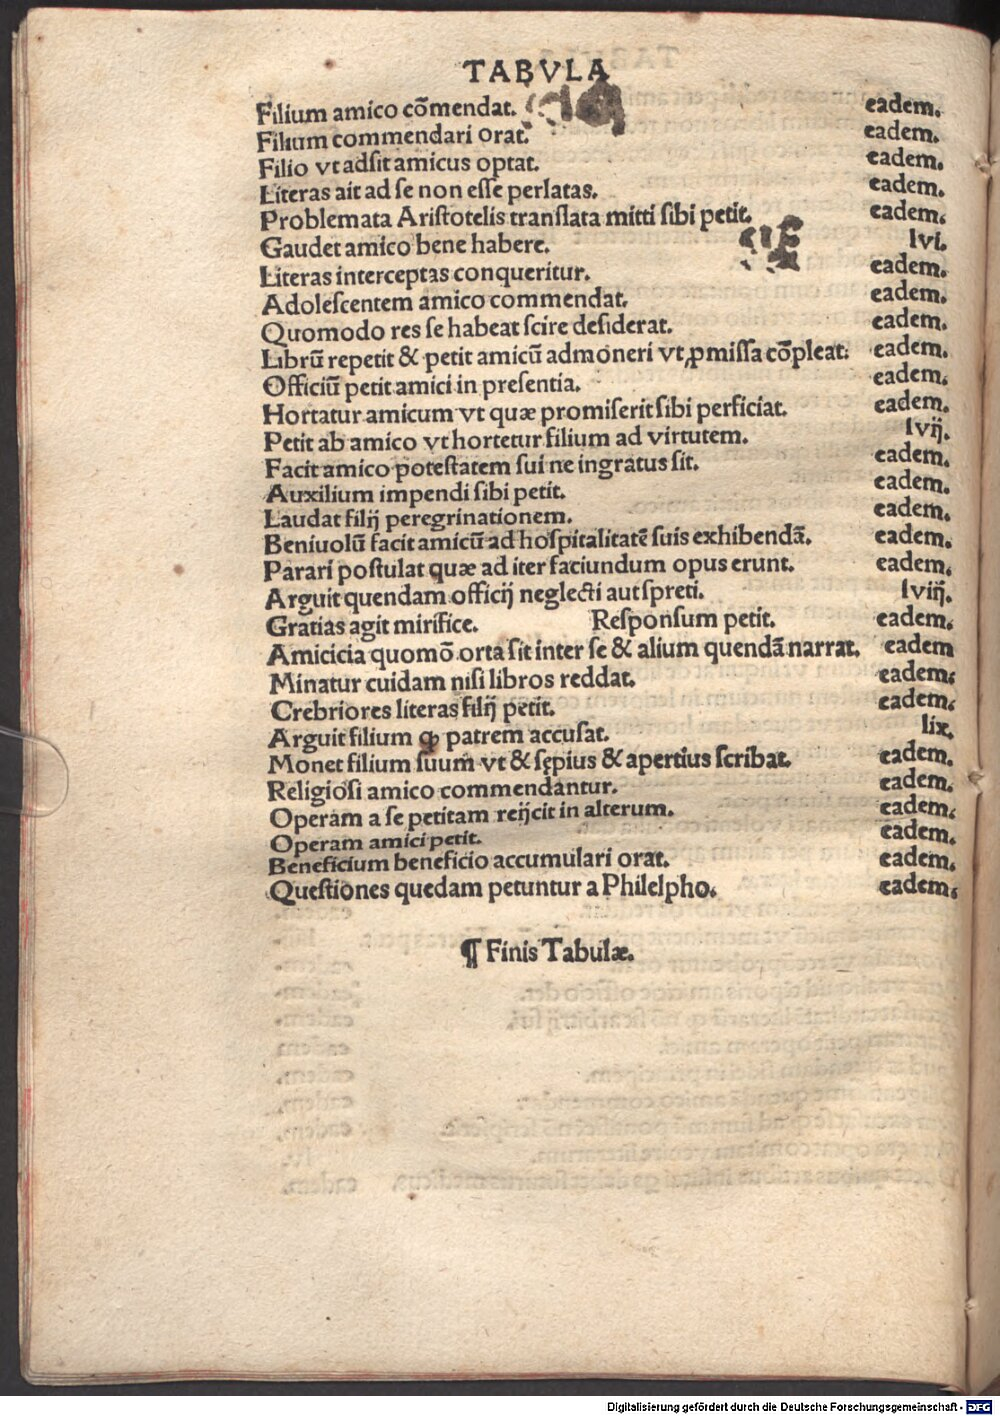 TABVLA
Filium amico cōmendat. eadem.
Filium commendari orat. eadem.
Filio vt adsit amicus optat. eadem.
Literas ait ad se non esse perlatas. eadem.
Problemata Aristotelis translata mitti sibi petit. eadem.
Gaudet amico bene habere. lvi.
Literas interceptas conqueritur. eadem.
Adolescentem amico commendat. eadem.
Quomodo res se habeat scire desiderat. eadem.
Librū repetit & petit amicū admoneri vt ꝓmissa cōpleat. eadem.
Officiū petit amici in presentia. eadem.
Hortatur amicum vt quæ promiserit sibi perficiat. eadem.
Petit ab amico vt hortetur filium ad virtutem. lvij.
Facit amico potestatem sui ne ingratus sit. eadem.
Auxilium impendi sibi petit. eadem.
Laudat filij peregrinationem. eadem.
Beniuolū facit amicū ad hospitalitatē suis exhibendā. eadem.
Parari postulat quæ ad iter faciundum opus erunt. eadem.
Arguit quendam officij neglecti aut spreti. lviij.
Gratias agit mirifice. Responsum petit. eadem.
Amicicia quomō orta sit inter se & alium quendā narrat. eadem
Minatur cuidam nisi libros reddat. eadem.
Crebriores literas filij petit. eadem.
Arguit filium ꝙ patrem accusat. lix.
Monet filium suum vt & sępius & apertius scribat. eadem.
Religiosi amico commendantur. eadem.
Operam a se petitam reijcit in alterum. eadem.
Operam amici petit. eadem.
Beneficium beneficio accumulari orat. eadem.
Questiones quedam petuntur a Philelpho. eadem.
¶ Finis Tabulæ.
Digitalisierung gefördert durch die Deutsche Forschungsgemeinschaft - DFG